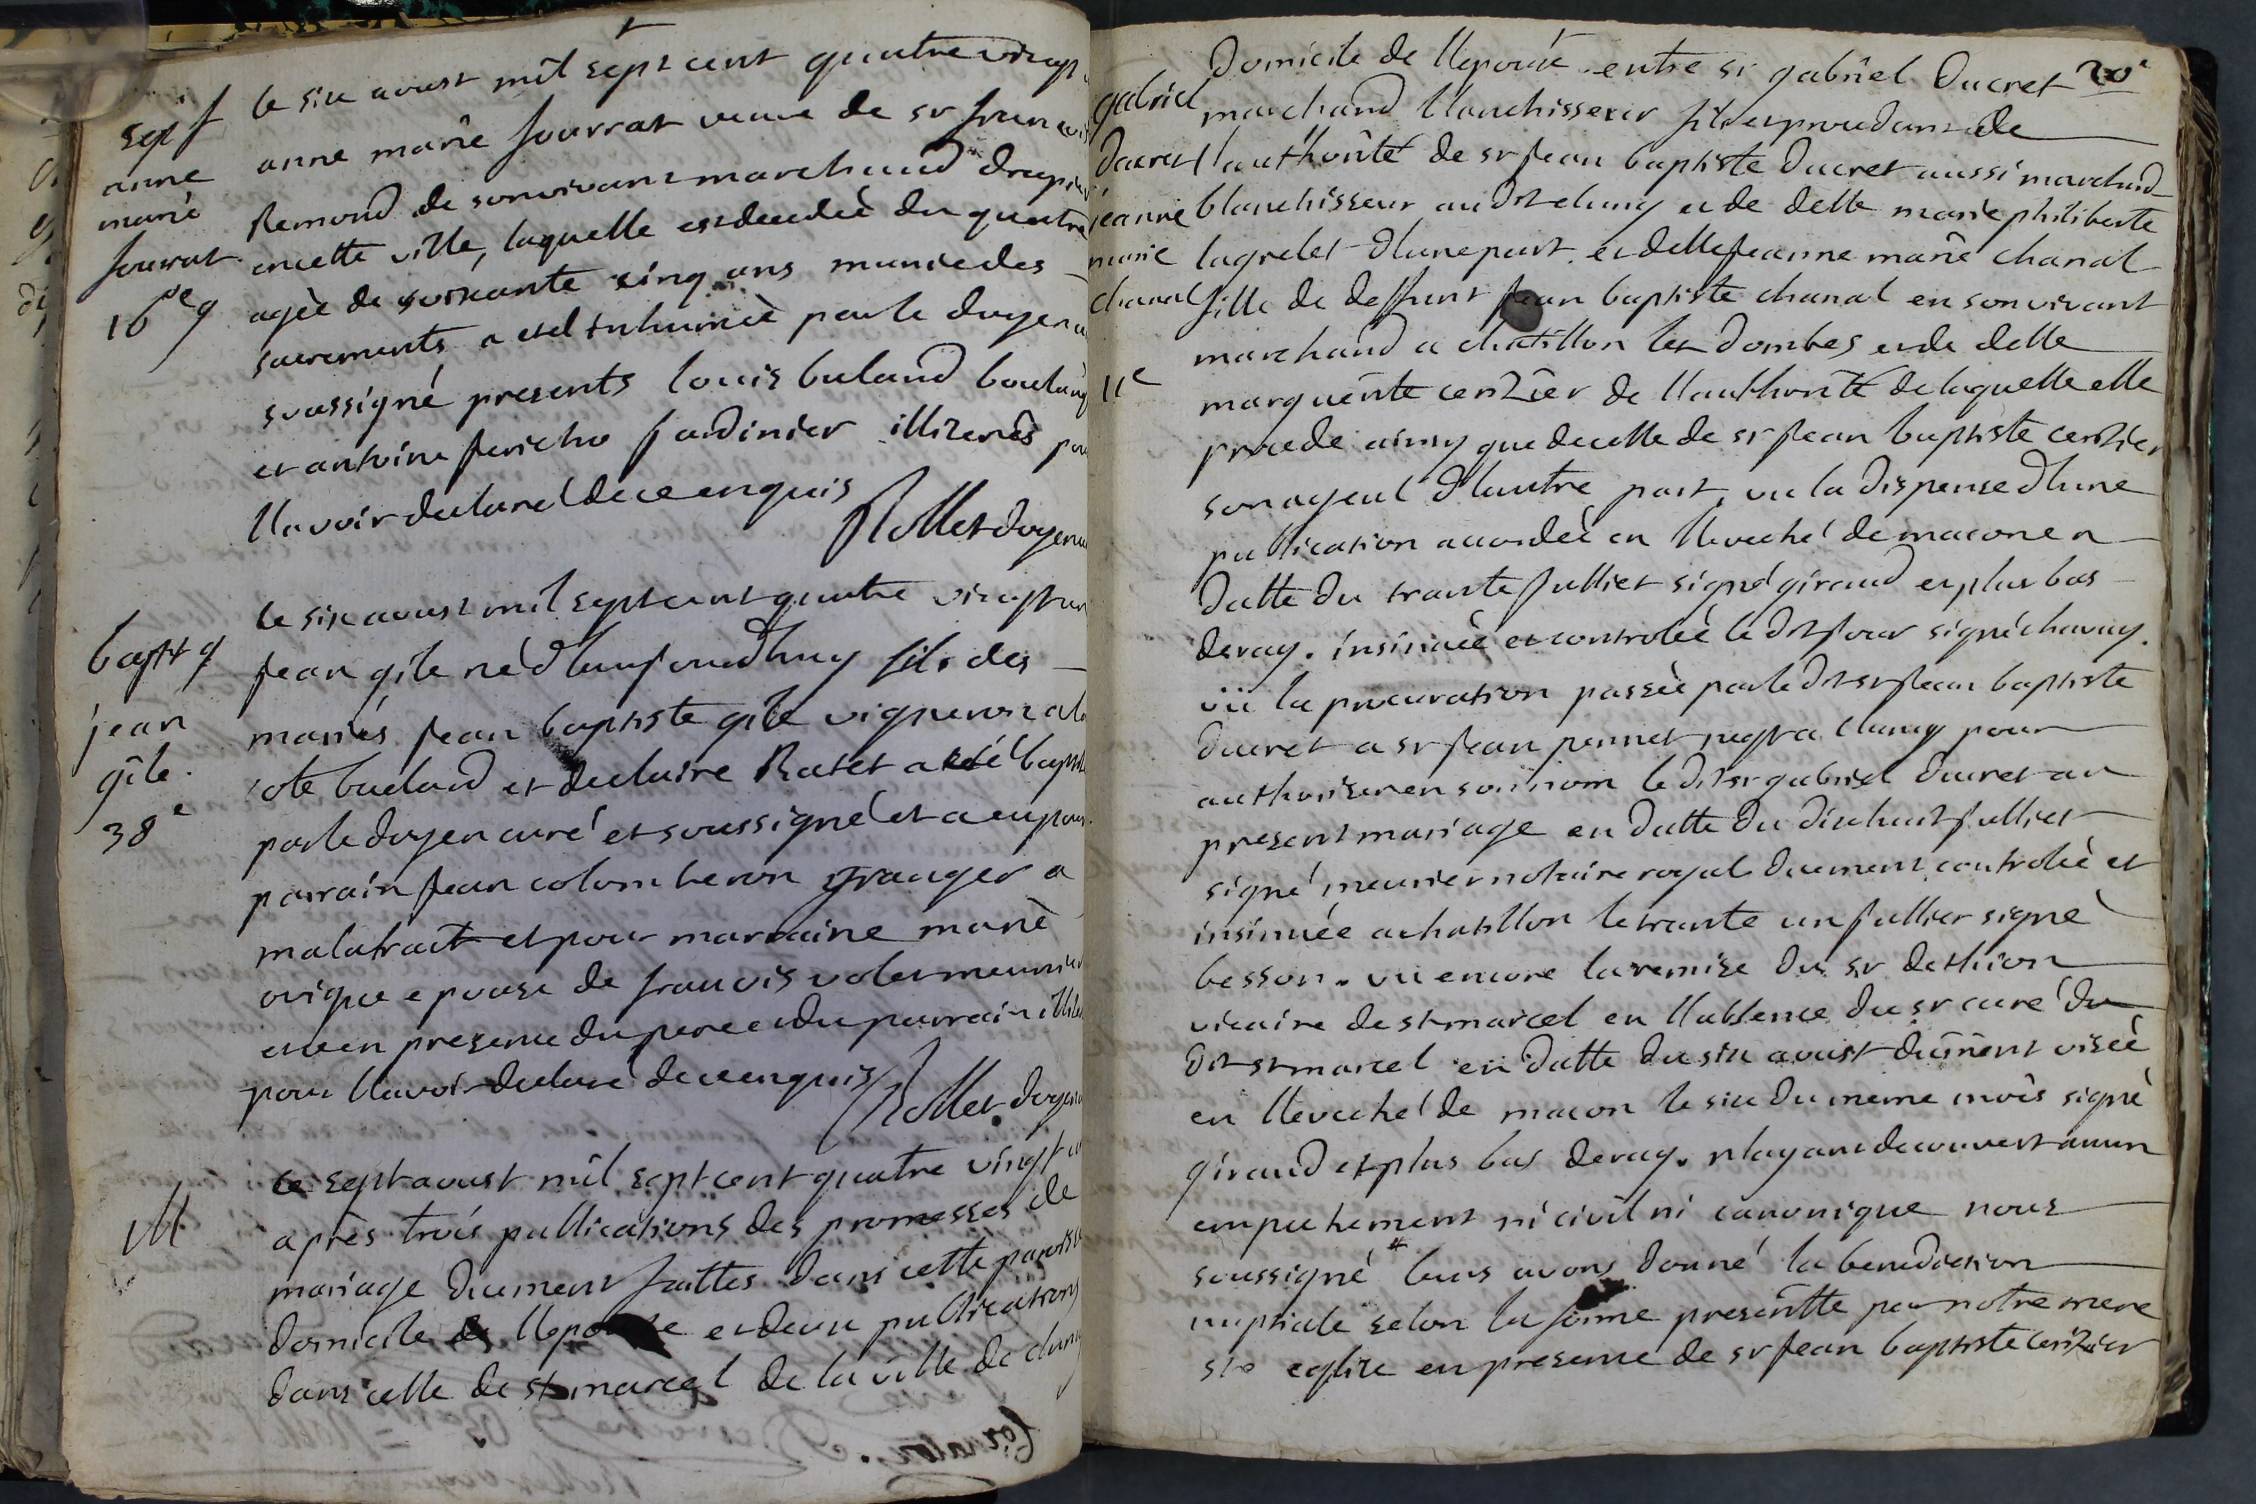 sepf
anne
marie
fourrat
16e g
le six avust mil sept cent quatre vingt
anne marie fourrat veuve de sr francois
Remond de sonvivant marchand drapier
encette ville, laquelle estdecedeè du quatre
agèe de soixante cinq ans muniedes
sacrements, a etel inhumèè parle doyen
soussigné presents louis buland boulang
et antoine fericho jardinier illiterés pour
llavoir declarel dece enquis
Rollet doyen
bapt g
jean
gile.
38e
le six avust mil septcent quatre vingt un
jean gile néd laujourdhuy fils des
mariés jean baptiste gile vigneron a la
cote buland et declaire Ratet a eté bapt
parle doyen curé et soussigné et a eu pour
parrain jean colomberon granger a
malatrait et pour marraine marie
ovique epouse de francois volet meunier
eteen presence dupere etdu parrain illite
pour llavoir declaré dece enquis
Rollet doyen
M
Le sept avust mil sept cent quatre vingt un
après trois publications des promesses de
mariage duement faittes dans cette paroisse
domicile de llepouse etdeux publications
dans celle de st marcel de la ville de cluny
20e
gabriel
ducret
jeanne
marie
chanal
11e
Domicile de llepoux entre sr gabriel Ducret
marchand blanchisseur fils etprocedant de
llauthorité de sr jean baptiste ducret aussi marchand
blanchisseur audit cluny et de delle marie philiberte
lagrelet dlune part. et delle jeanne marie chanal
fille de deffunt jean baptiste chanal en sonvivant
marchand a chatillon les dombes etde delle
marguerite cerizier de llauthorité delaquelle elle
procede ainsy que decelle de sr jean baptiste cerizier
sonayeul dlautre part, vu la dispense dlune
publication accordèè en lleveché demacon en
datte du trante julliet signé giraud et plus bas
deray. insinuèè et controlèè ledit jour signé chavuy.
vü la procuration passèè parledit sr jean baptiste
ducret a sr jean perret negt a cluny pour
authoriser en son nom le dit sr gabriel ducret au
present mariage en datte du dixhuit jullier
signé meunier notaire royal duement controlèè et
insinuée achatillon letrante un jullier signè
besson. vu encore la remise du sr dethion
vicaire de st marcel en llabsence du sr curé du
dit st marcel en datte du six avust dument visèè
en lleveché de macon le six du meme mois signè
giraud et plus bas deray. nlayant decouvert aucun
empechement ni civil ni canonique nous
soussigné # leurs avons donné la benediction
nuptiale selon la forme prescritte par notre mere
ste eglise en presence de sr jean baptiste cerizier